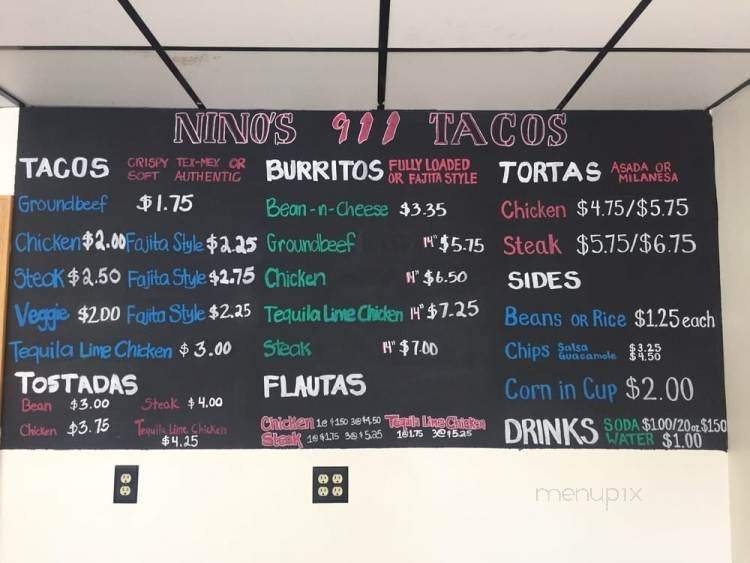 NINO'S 911 TACOS
TACOS CRISPY TEX-MEX OR
SOFT AUTHENTIC
Groundbeef $1.75
Chicken $2.00 Fajita Style $2.25
Steak $2.50 Fajita Style $2.75
Veggie $2.00 Fajita Style $2.25
Tequila Lime Chicken $3.00
TOSTADAS
Bean $3.00 Steak $4.00
Chicken $3.75 Tequila Lime Chicken
$4.25
BURRITOS FULLY LOADED
OR FAJITA STYLE
Bean-n-Cheese $3.35
Groundbeef 14" $5.75
Chicken 14" $6.50
Tequila Lime Chicken 14" $7.25
Steak 14" $7.00
FLAUTAS
Chicken 1@ $1.50 3@$4.50 Tequila Lime Chicken
Steak 1@$1.75 3@$5.25 1@1.75 3@$5.25
TORTAS ASADA OR
MILANESA
Chicken $4.75/$5.75
Steak $5.75/$6.75
SIDES
Beans OR Rice $1.25 each
Chips Salsa $3.25
Guacamole $4.50
Corn in Cup $2.00
DRINKS SODA $1.00/20oz $1.50
WATER $1.00
menupix